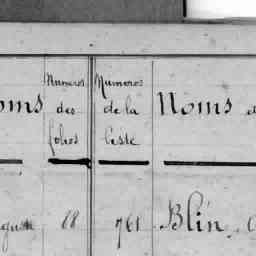 oms Numeros des folios Numeros de la liste Noms e
gnon 88 761 Blin. C